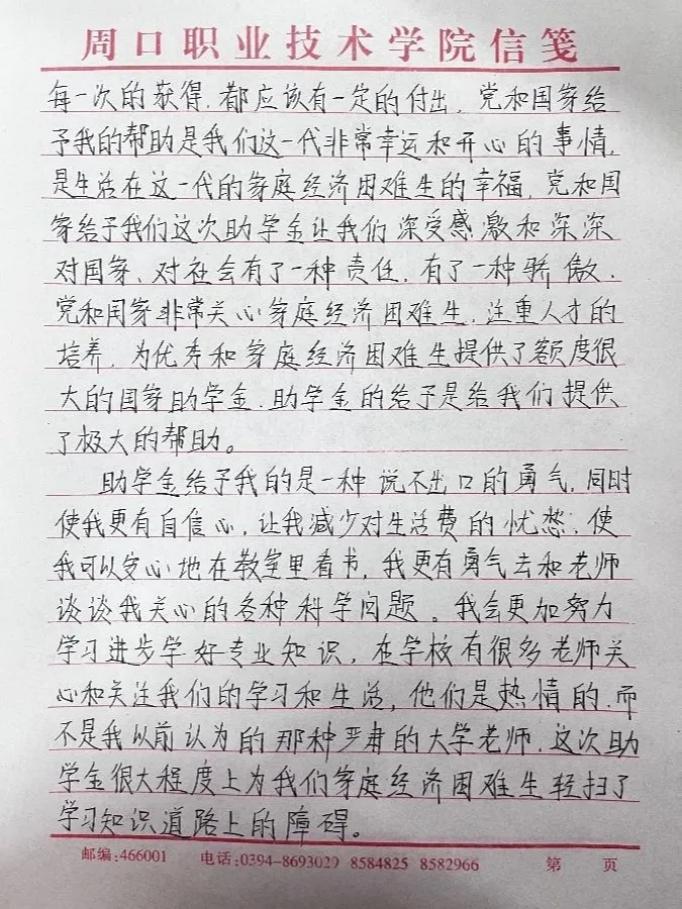 周口职业技术学院信笺
每一次的获得，都应该有一定的付出，党和国家给
予我的帮助是我们这一代非常幸运和开心的事情，
是生活在这一代的家庭经济困难生的幸福，党和国
家给予我们这次助学金让我们深受感激和深深
对国家、对社会有了一种责任，有了一种骄傲，
党和国家非常关心家庭经济困难生，注重人才的
培养，为优秀和家庭经济困难生提供了额度很
大的国家助学金，助学金的给予是给我们提供
了极大的帮助。
助学金给予我的是一种说不出口的勇气，同时
使我更有自信心，让我减少对生活费的忧愁，使
我可以安心地在教室里看书，我更有勇气去和老师
谈谈我关心的各种科学问题。我会更加努力
学习进步学好专业知识，在学校有很多老师关
心和关注我们的学习和生活，他们是热情的，而
不是我以前认为的那种严肃的大学老师，这次助
学金很大程度上为我们家庭经济困难生轻扫了
学习知识道路上的障碍。
邮编:466001 电话:0394-8693029 8584825 8582966 第 页